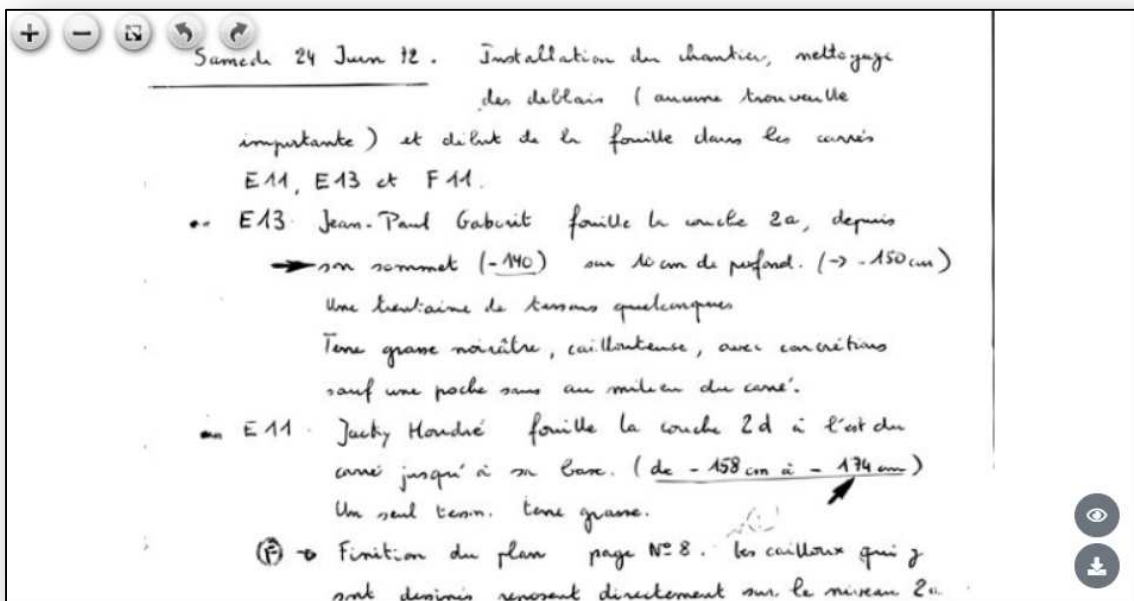 Samedi 24 Juin 72. Installation du chantier, nettoyage
des deblais (aucune trouvaille
importante) et début de la fouille dans les carrés
E11, E13 et F11.
E13. Jean-Paul Gaborit fouille la couche 2a, depuis
son sommet (-140) sur 10 cm de profond. (→ -150 cm)
Une trentaine de tessons quelconques
Terre grasse noirâtre, caillouteuse, avec concrétions
sauf une poche sans au milieu du carré.
E11. Jacky Houdré fouille la couche 2d à l'est du
carré jusqu'à sa base. (de - 158 cm à - 174 cm)
Un seul tesson. terre grasse.
(F) → Finition du plan page N° 8. les cailloux qui y
sont dessinés reposent directement sur le niveau 2a.